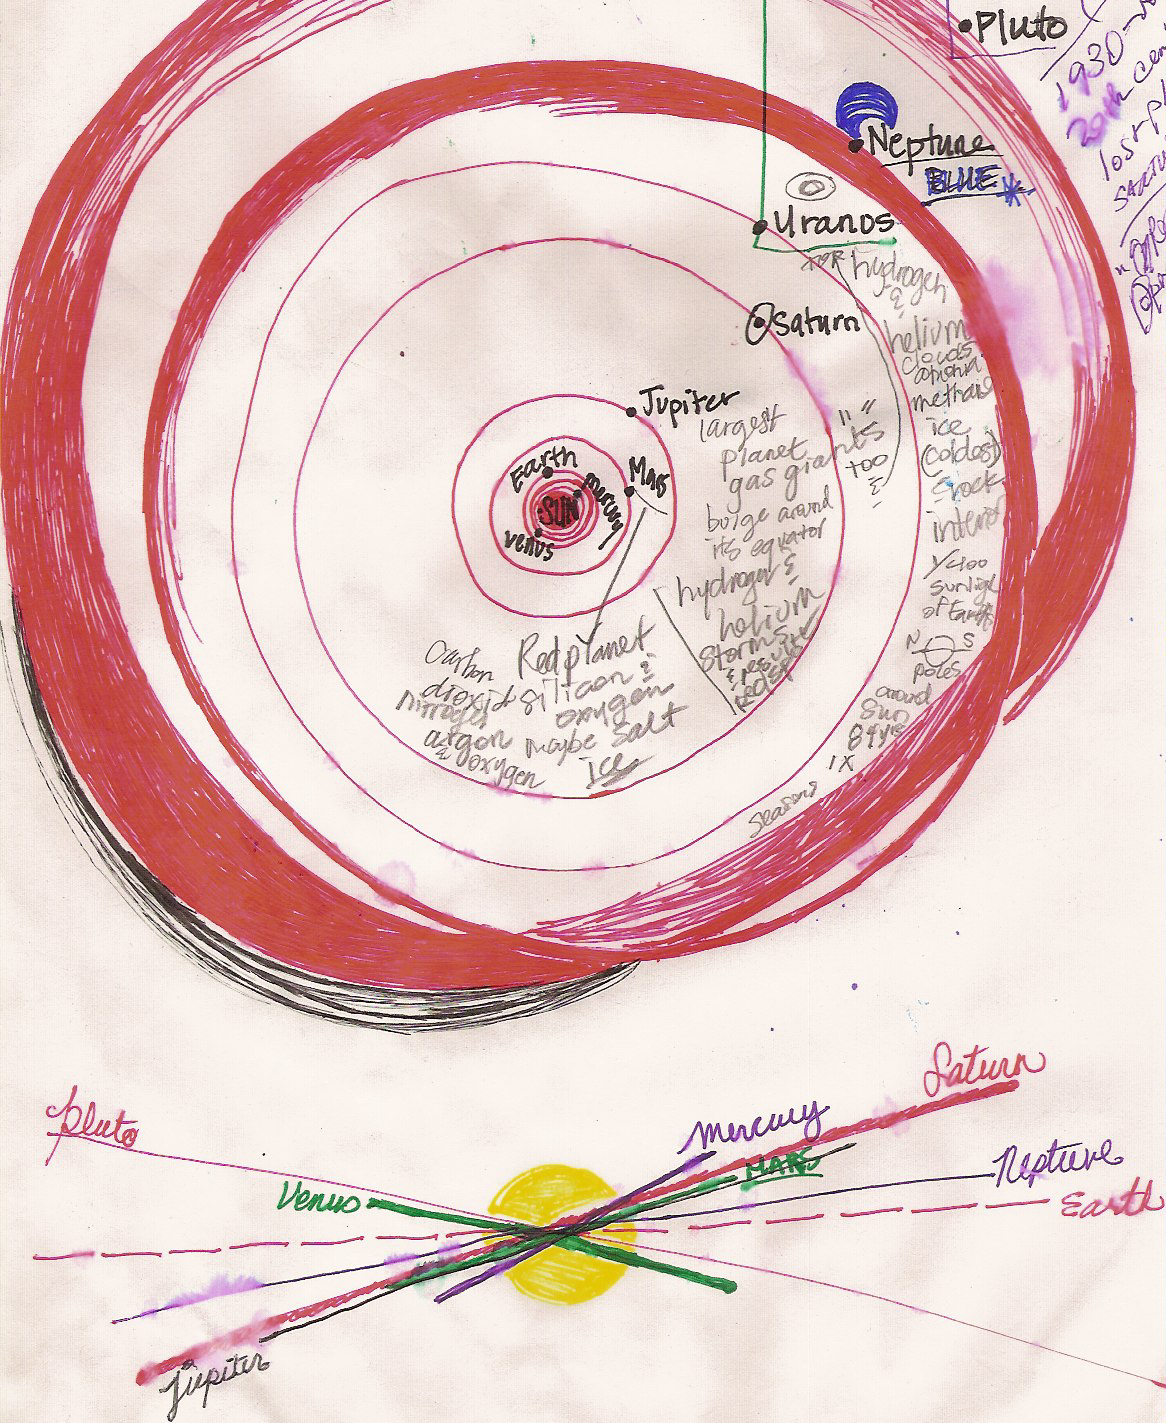 Pluto
1930
20th cen
lost pl
Neptune
BLUE
Uranos
hydrogen
&
helium
clouds
methane
ice
(coldest)
rock
interior
1/400
sunlight
of Earth
N S
poles
around
sun
84 yrs
1X
seasons
Saturn
" "
too
&
Jupiter
largest
planet
gas giants
bulge around
its equator
hydrogen &
helium
storms
&
Earth
Mercury
Mars
SUN
Venus
Red planet
silicon &
oxygen
maybe salt
Ice
carbon
dioxide
nitrogen
argon
& oxygen
Saturn
Pluto
Mercury
MARS
Neptune
Venus
Earth
Jupiter